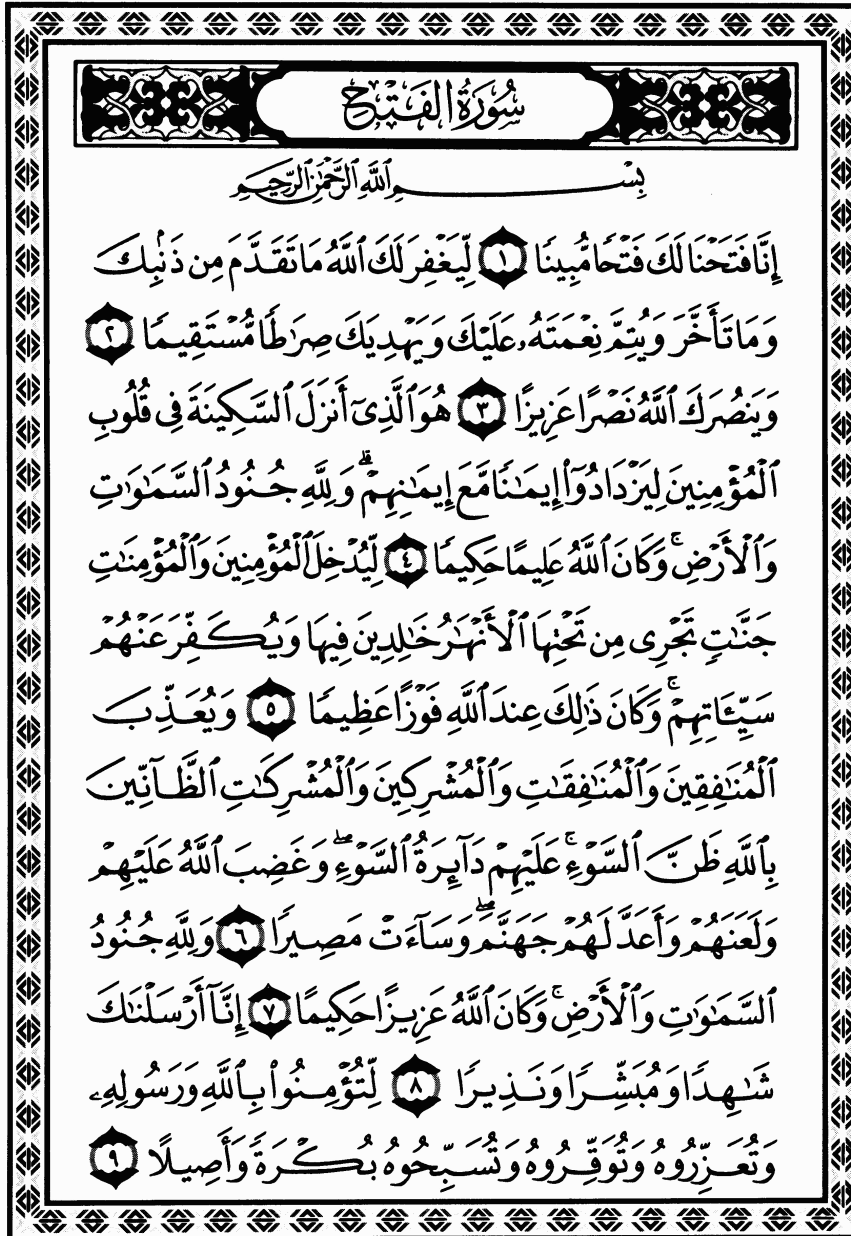 سُورَةُ الفَتْحِ
بِسْمِ ٱللَّهِ ٱلرَّحْمَٰنِ ٱلرَّحِيمِ
إِنَّا فَتَحْنَا لَكَ فَتْحًا مُّبِينًا ١ لِّيَغْفِرَ لَكَ ٱللَّهُ مَا تَقَدَّمَ مِن ذَنۢبِكَ
وَمَا تَأَخَّرَ وَيُتِمَّ نِعْمَتَهُۥ عَلَيْكَ وَيَهْدِيَكَ صِرَٰطًا مُّسْتَقِيمًا ٢
وَيَنصُرَكَ ٱللَّهُ نَصْرًا عَزِيزًا ٣ هُوَ ٱلَّذِىٓ أَنزَلَ ٱلسَّكِينَةَ فِى قُلُوبِ
ٱلْمُؤْمِنِينَ لِيَزْدَادُوٓا۟ إِيمَٰنًا مَّعَ إِيمَٰنِهِمْ ۗ وَلِلَّهِ جُنُودُ ٱلسَّمَٰوَٰتِ
وَٱلْأَرْضِ ۚ وَكَانَ ٱللَّهُ عَلِيمًا حَكِيمًا ٤ لِّيُدْخِلَ ٱلْمُؤْمِنِينَ وَٱلْمُؤْمِنَٰتِ
جَنَّٰتٍ تَجْرِى مِن تَحْتِهَا ٱلْأَنْهَٰرُ خَٰلِدِينَ فِيهَا وَيُكَفِّرَ عَنْهُمْ
سَيِّـَٔاتِهِمْ ۚ وَكَانَ ذَٰلِكَ عِندَ ٱللَّهِ فَوْزًا عَظِيمًا ٥ وَيُعَذِّبَ
ٱلْمُنَٰفِقِينَ وَٱلْمُنَٰفِقَٰتِ وَٱلْمُشْرِكِينَ وَٱلْمُشْرِكَٰتِ ٱلظَّآنِّينَ
بِٱللَّهِ ظَنَّ ٱلسَّوْءِ ۚ عَلَيْهِمْ دَآئِرَةُ ٱلسَّوْءِ ۖ وَغَضِبَ ٱللَّهُ عَلَيْهِمْ
وَلَعَنَهُمْ وَأَعَدَّ لَهُمْ جَهَنَّمَ ۖ وَسَآءَتْ مَصِيرًا ٦ وَلِلَّهِ جُنُودُ
ٱلسَّمَٰوَٰتِ وَٱلْأَرْضِ ۚ وَكَانَ ٱللَّهُ عَزِيزًا حَكِيمًا ٧ إِنَّآ أَرْسَلْنَٰكَ
شَٰهِدًا وَمُبَشِّرًا وَنَذِيرًا ٨ لِّتُؤْمِنُوا۟ بِٱللَّهِ وَرَسُولِهِۦ
وَتُعَزِّرُوهُ وَتُوَقِّرُوهُ وَتُسَبِّحُوهُ بُكْرَةً وَأَصِيلًا ٩